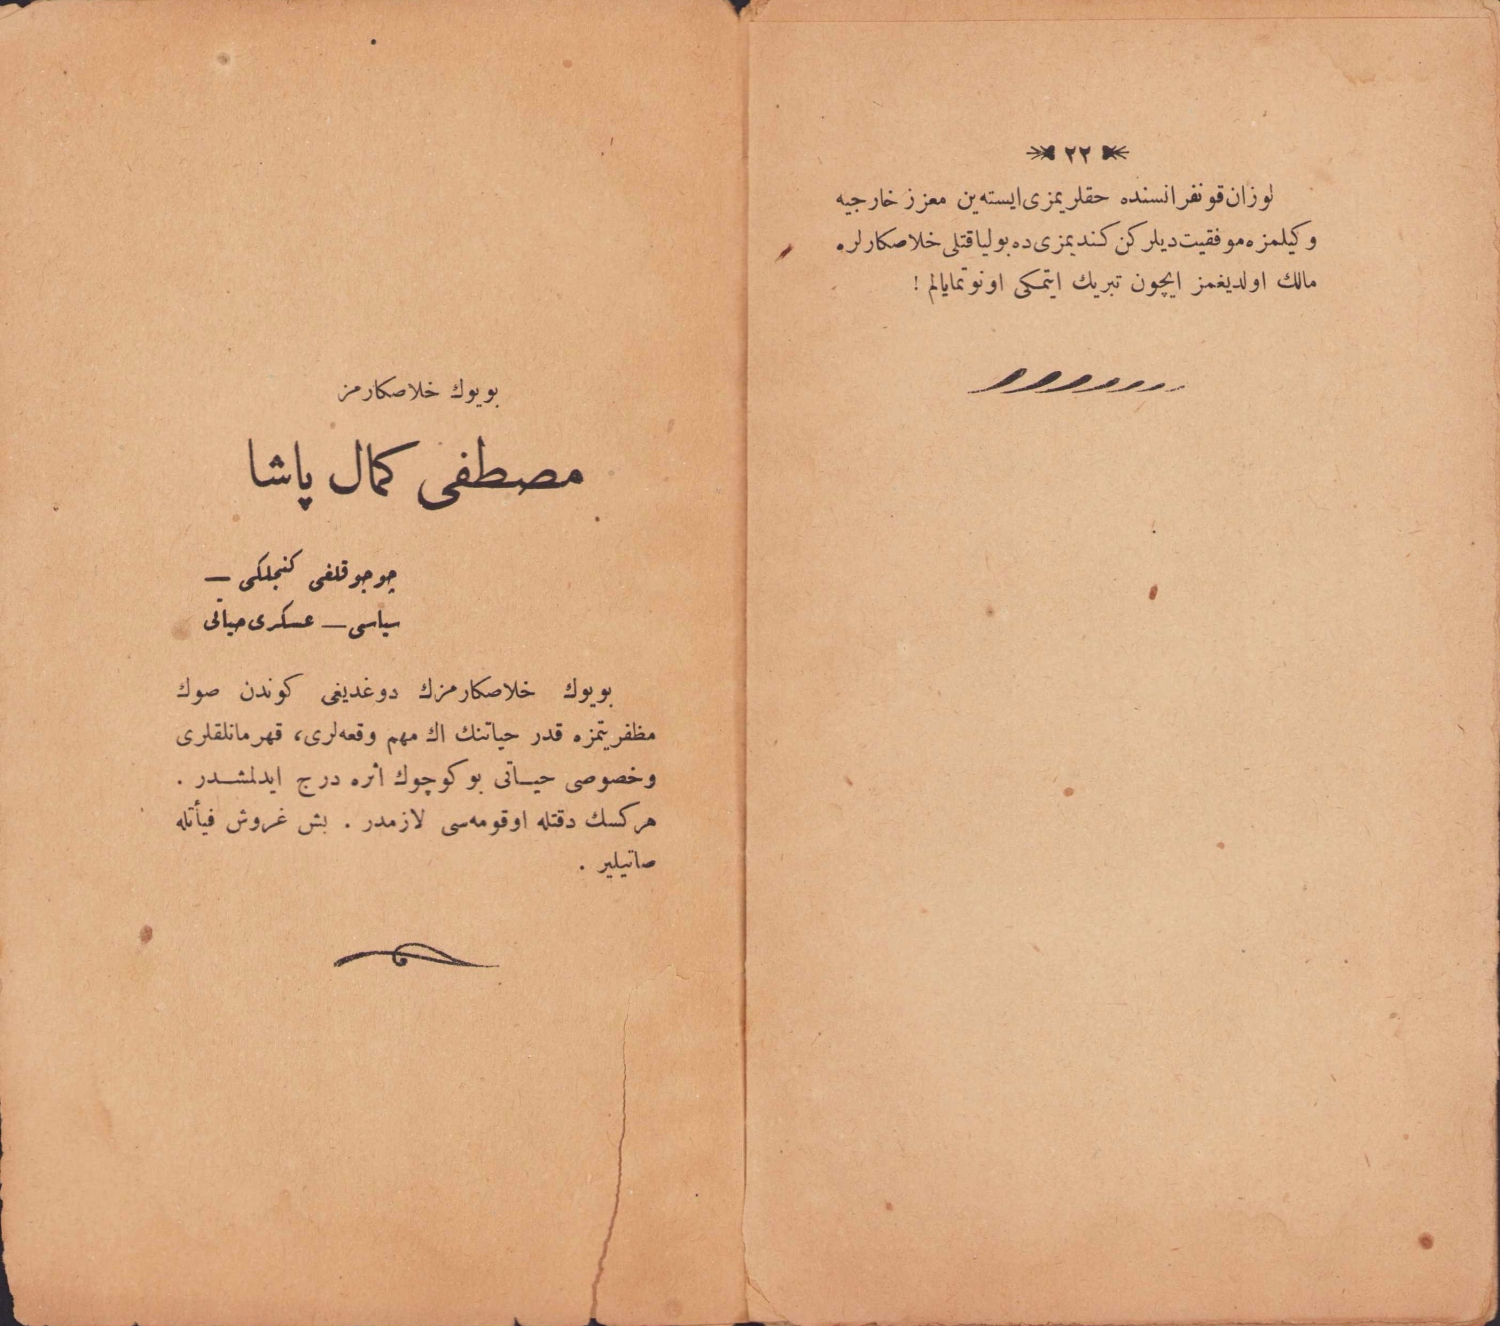 ٢٢
لوزان قونفرانسنده حقلريمزى ايسته‌ين معزز خارجيه
وكيلمزه موفقيت ديلركن كنديمزى ده بو لياقتلى خلاصكارلره
مالك اولديغمز ايچون تبريك ايتمكى اونوتمايالم !
بويوك خلاصكارمز
مصطفى كمال پاشا
چوجوقلغى كنجلكى —
سياسى — عسكرى حياتى
بويوك خلاصكارمزك دوغديغى كوندن صوك
مظفريتمزه قدر حياتنك اك مهم وقعه‌لرى، قهرمانلقلرى
وخصوصى حيــاتى بو كوچوك اثره درج ايدلمشــدر .
هركسك دقتله اوقومه‌سى لازمدر . بش غروش فيأتله
صاتيلير .